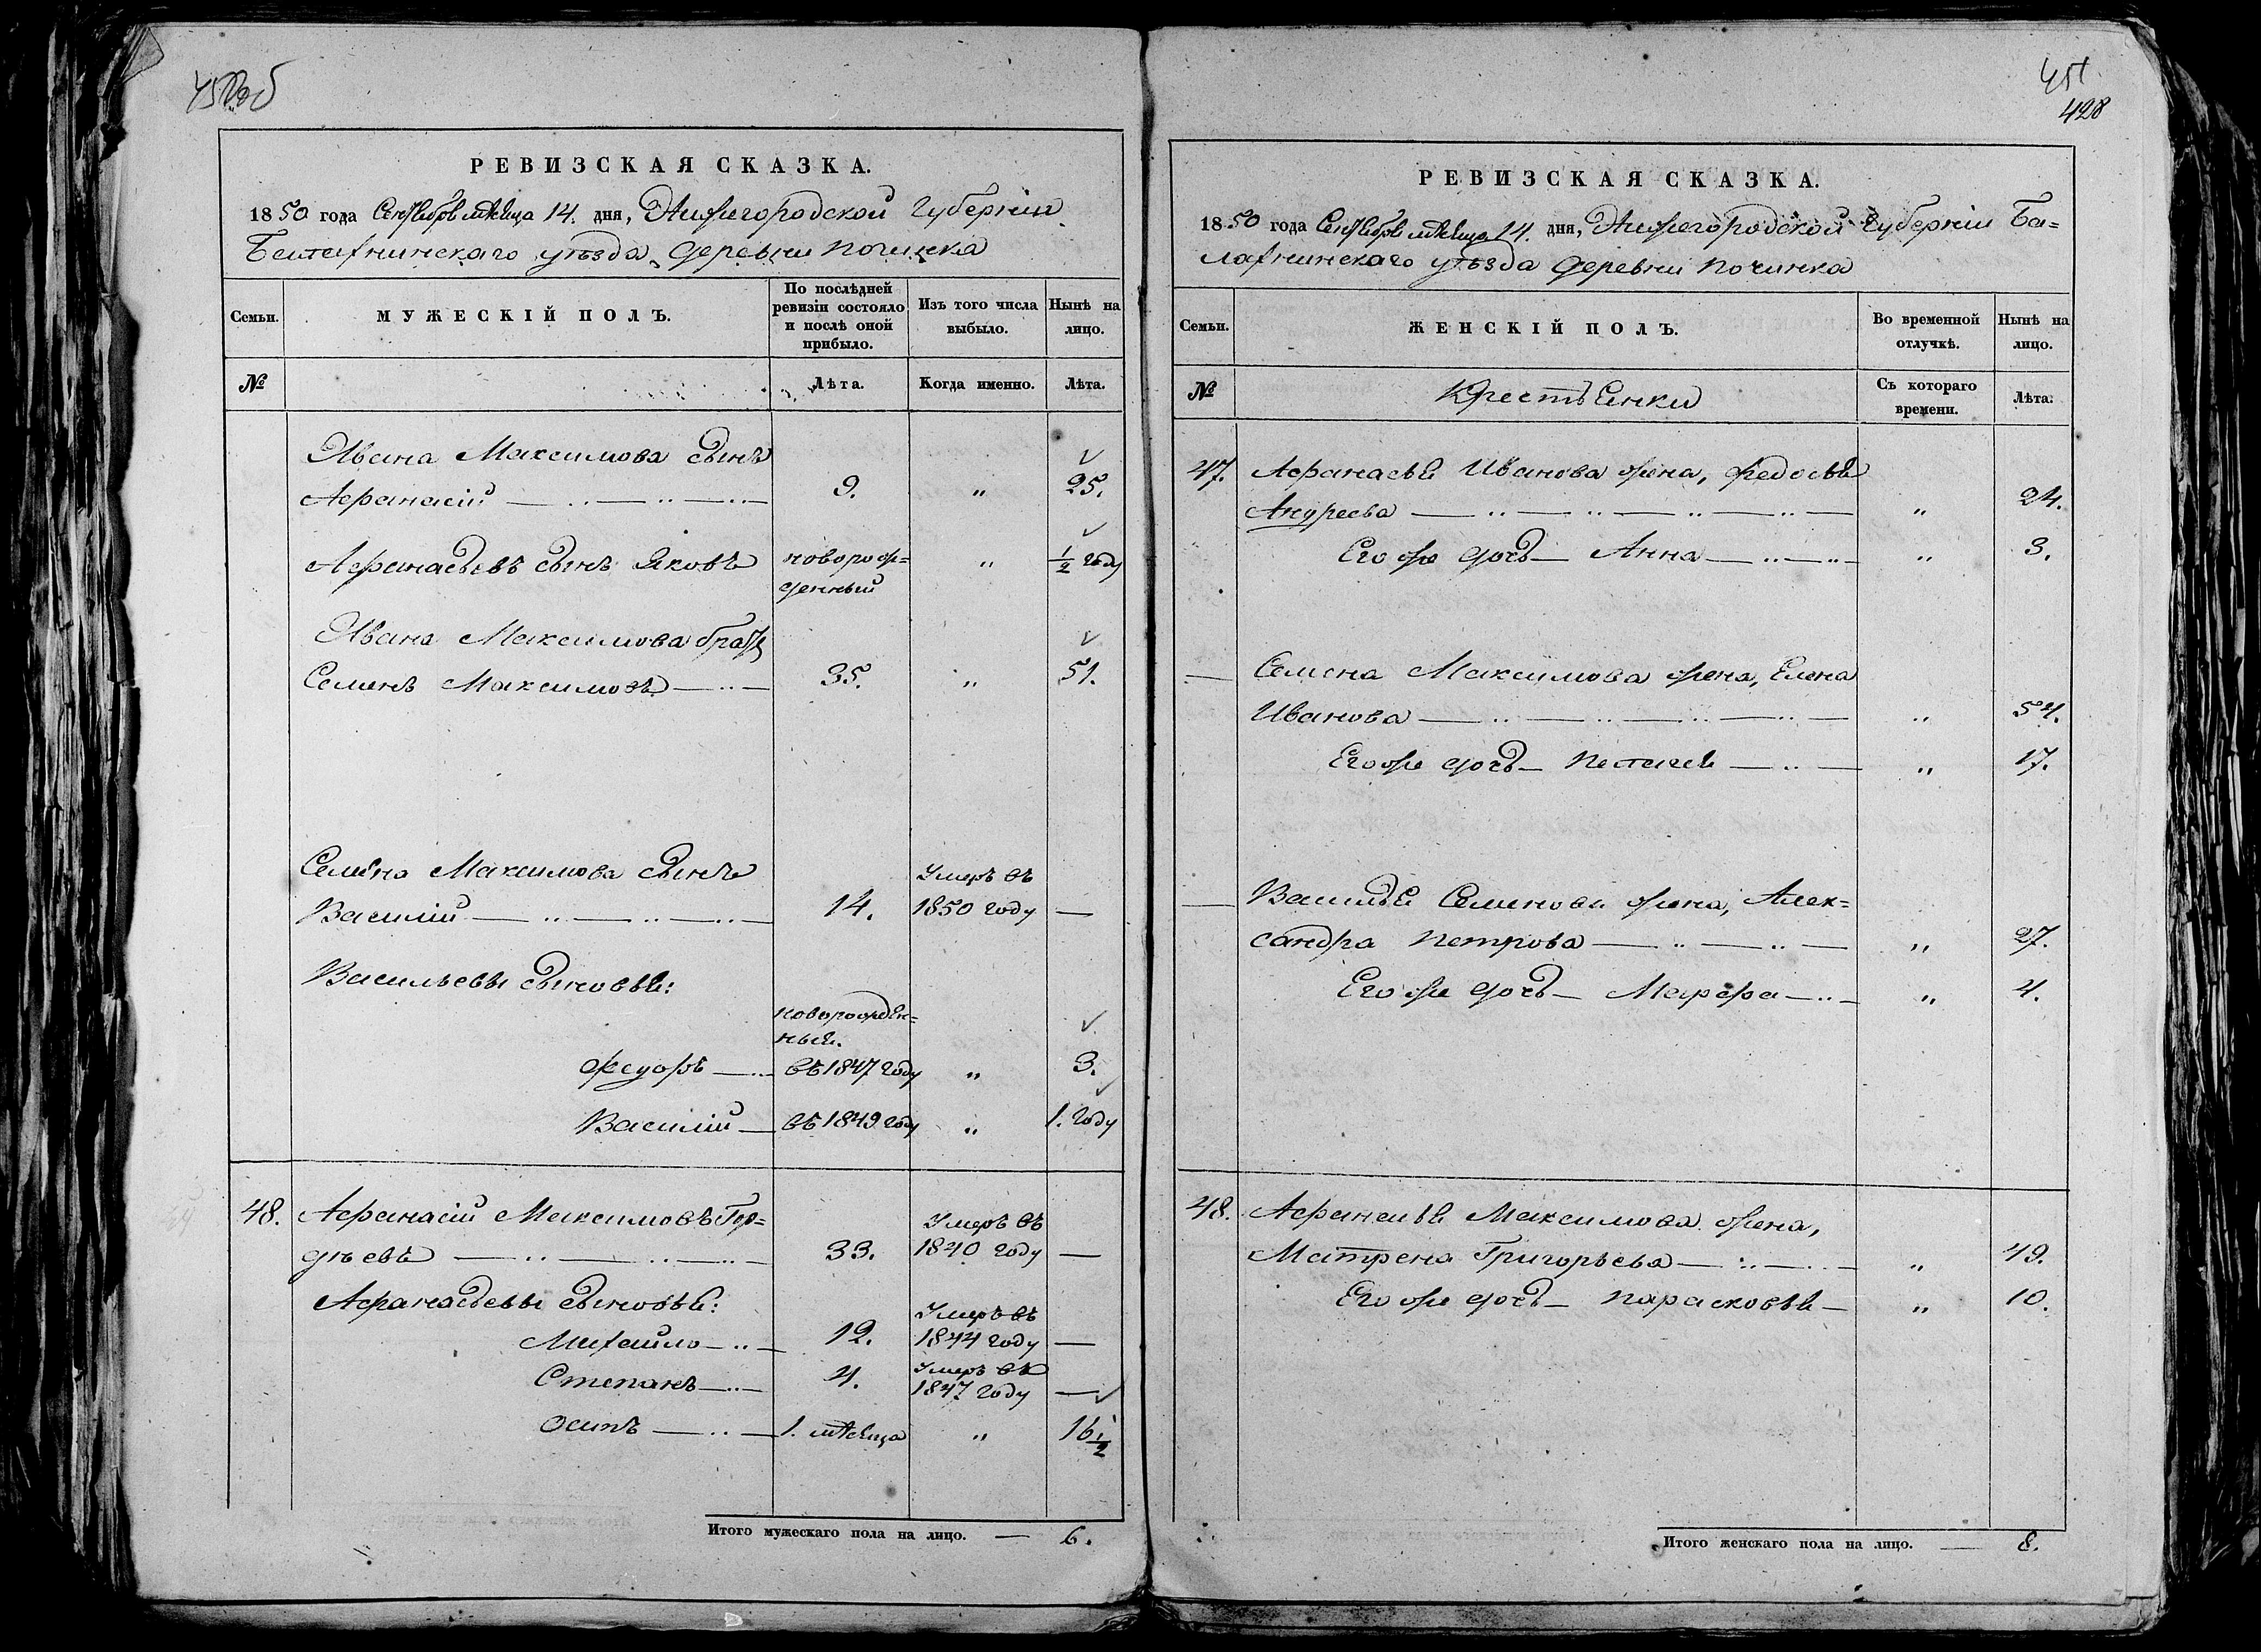 450об
РЕВИЗСКАЯ СКАЗКА.
1850 года Сентября мѣсяца 14. дня, Нижегородской Губерніи
Балахнинскаго уѣзда, деревни Починка
Семьи.
МУЖЕСКІЙ ПОЛЪ.
По послѣдней ревизіи состояло и послѣ оной прибыло.
Изъ того числа выбыло.
Нынѣ на лицо.
№
Лѣта.
Когда именно.
Лѣта.
Ивана Максимова сынъ
Афанасій 9. " 25.
Афанасьевъ сынъ Яковъ новорож= " 1/2 году
денный
Ивана Максимова братъ
Семенъ Максимовъ 35. " 51.
Семена Максимова сынъ Умеръ въ
Василій 14. 1850 году —
Васильевы сыновья:
новорожден=
ные.
Федоръ въ 1847 году " 3.
Василій въ 1849 году " 1. году
48. Афанасій Максимовъ Гор= Умеръ въ
дѣевъ 33. 1840 году —
Афанасьевы сыновья: Умеръ въ
Михайло 12. 1844 году —
Степанъ 4. Умеръ въ
1847 году —
Осипъ 1. мѣсяца " 16 1/2
Итого мужескаго пола на лицо. — 6.
451
428
РЕВИЗСКАЯ СКАЗКА.
1850 года Сентября мѣсяца 14. дня, Нижегородской Губерніи Ба=
лахнинскаго уѣзда деревни Починка
Семьи.
ЖЕНСКІЙ ПОЛЪ.
Во временной отлучкѣ.
Нынѣ на лицо.
№
Крестьянки
Съ котораго времени.
Лѣта.
47. Афанасья Иванова жена, Федосья
Андреева " 24.
Его же дочь Анна " 3.
— Семена Максимова жена, Елена
Иванова " 54.
Его же дочь Пелагея " 17.
— Василья Семенова жена, Алек=
сандра Петрова " 27.
Его же дочь Марфа " 4.
48. Афанасья Максимова жена,
Матрена Григорьева " 49.
Его же дочь Парасковья " 10.
Итого женскаго пола на лицо. — 8.